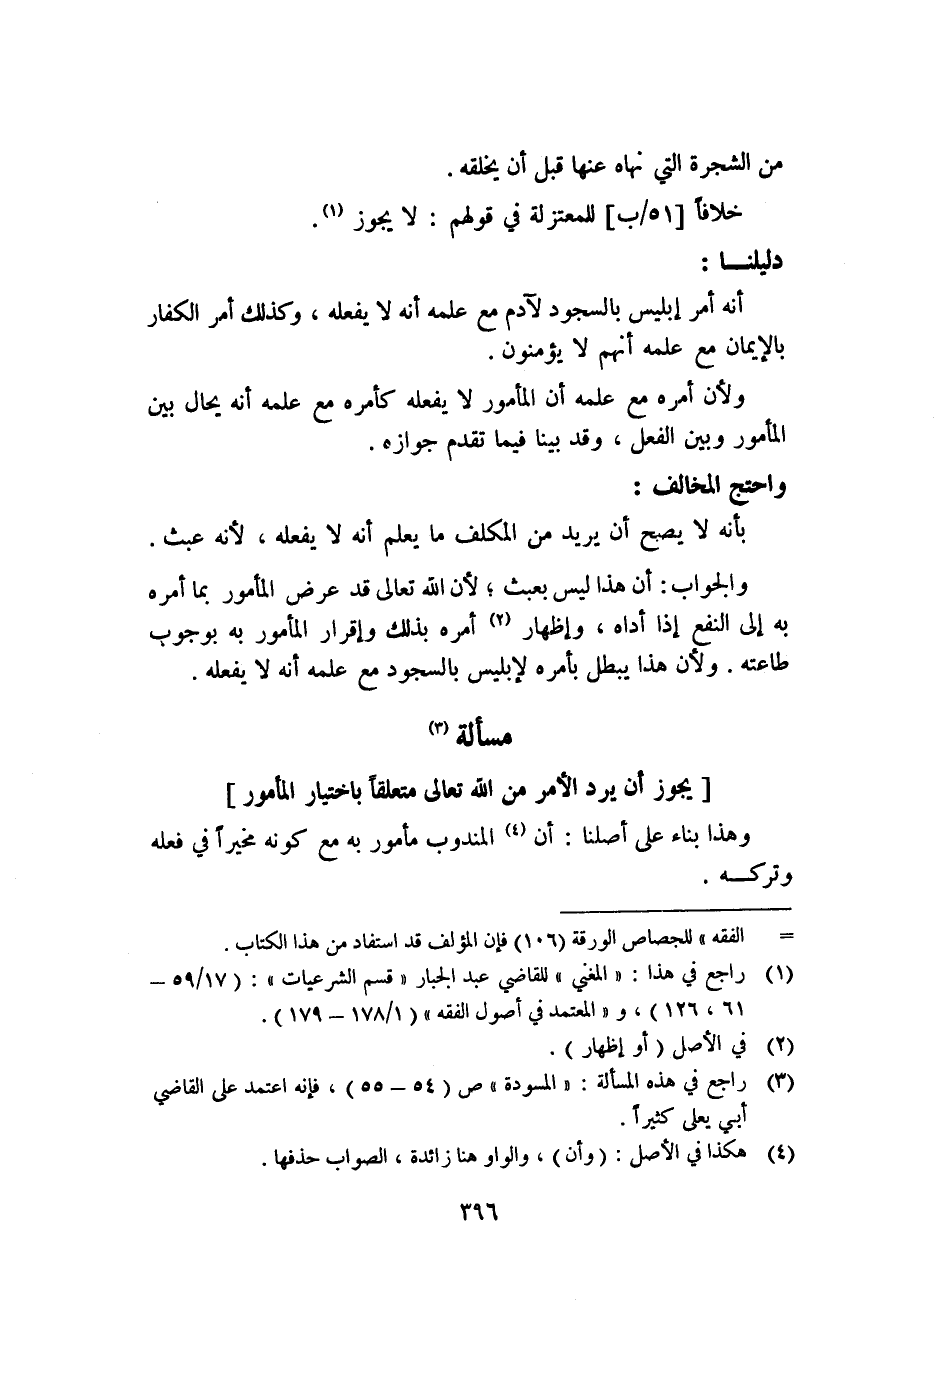 من الشجرة التي نهاه عنها قبل أن يخلقه .
خلافاً [٥١/ب] للمعتزلة في قولهم : لا يجوز (١) .
دليلنـــا :
أنه أمر إبليس بالسجود لآدم مع علمه أنه لا يفعله ، وكذلك أمر الكفار
بالإيمان مع علمه أنهم لا يؤمنون .
ولأن أمره مع علمه أن المأمور لا يفعله كأمره مع علمه أنه يحال بين
المأمور وبين الفعل ، وقد بينا فيما تقدم جوازه .
واحتج المخالف :
بأنه لا يصح أن يريد من المكلف ما يعلم أنه لا يفعله ، لأنه عبث .
والجواب : أن هذا ليس بعبث ؛ لأن الله تعالى قد عرض المأمور بما أمره
به إلى النفع إذا أداه ، وإظهار (٢) أمره بذلك وإقرار المأمور به بوجوب
طاعته . ولأن هذا يبطل بأمره لإبليس بالسجود مع علمه أنه لا يفعله .
مسألة (٣)
[ يجوز أن يرد الأمر من الله تعالى متعلقاً باختيار المأمور ]
وهذا بناء على أصلنا : أن (٤) المندوب مأمور به مع كونه مخيراً في فعله
وتركـــه .
= الفقه » للجصاص الورقة (١٠٦) فإن المؤلف قد استفاد من هذا الكتاب .
(١) راجع في هذا : « المغني » للقاضي عبد الجبار « قسم الشرعيات » : ( ٥٩/١٧ –
٦١ ، ١٢٦ ) ، و « المعتمد في أصول الفقه » ( ١٧٨/١ – ١٧٩ ) .
(٢) في الأصل ( أو إظهار ) .
(٣) راجع في هذه المسألة : « المسودة » ص ( ٥٤ – ٥٥ ) ، فإنه اعتمد على القاضي
أبي يعلى كثيراً .
(٤) هكذا في الأصل : ( وأن ) ، والواو هنا زائدة ، الصواب حذفها .
٣٩٦